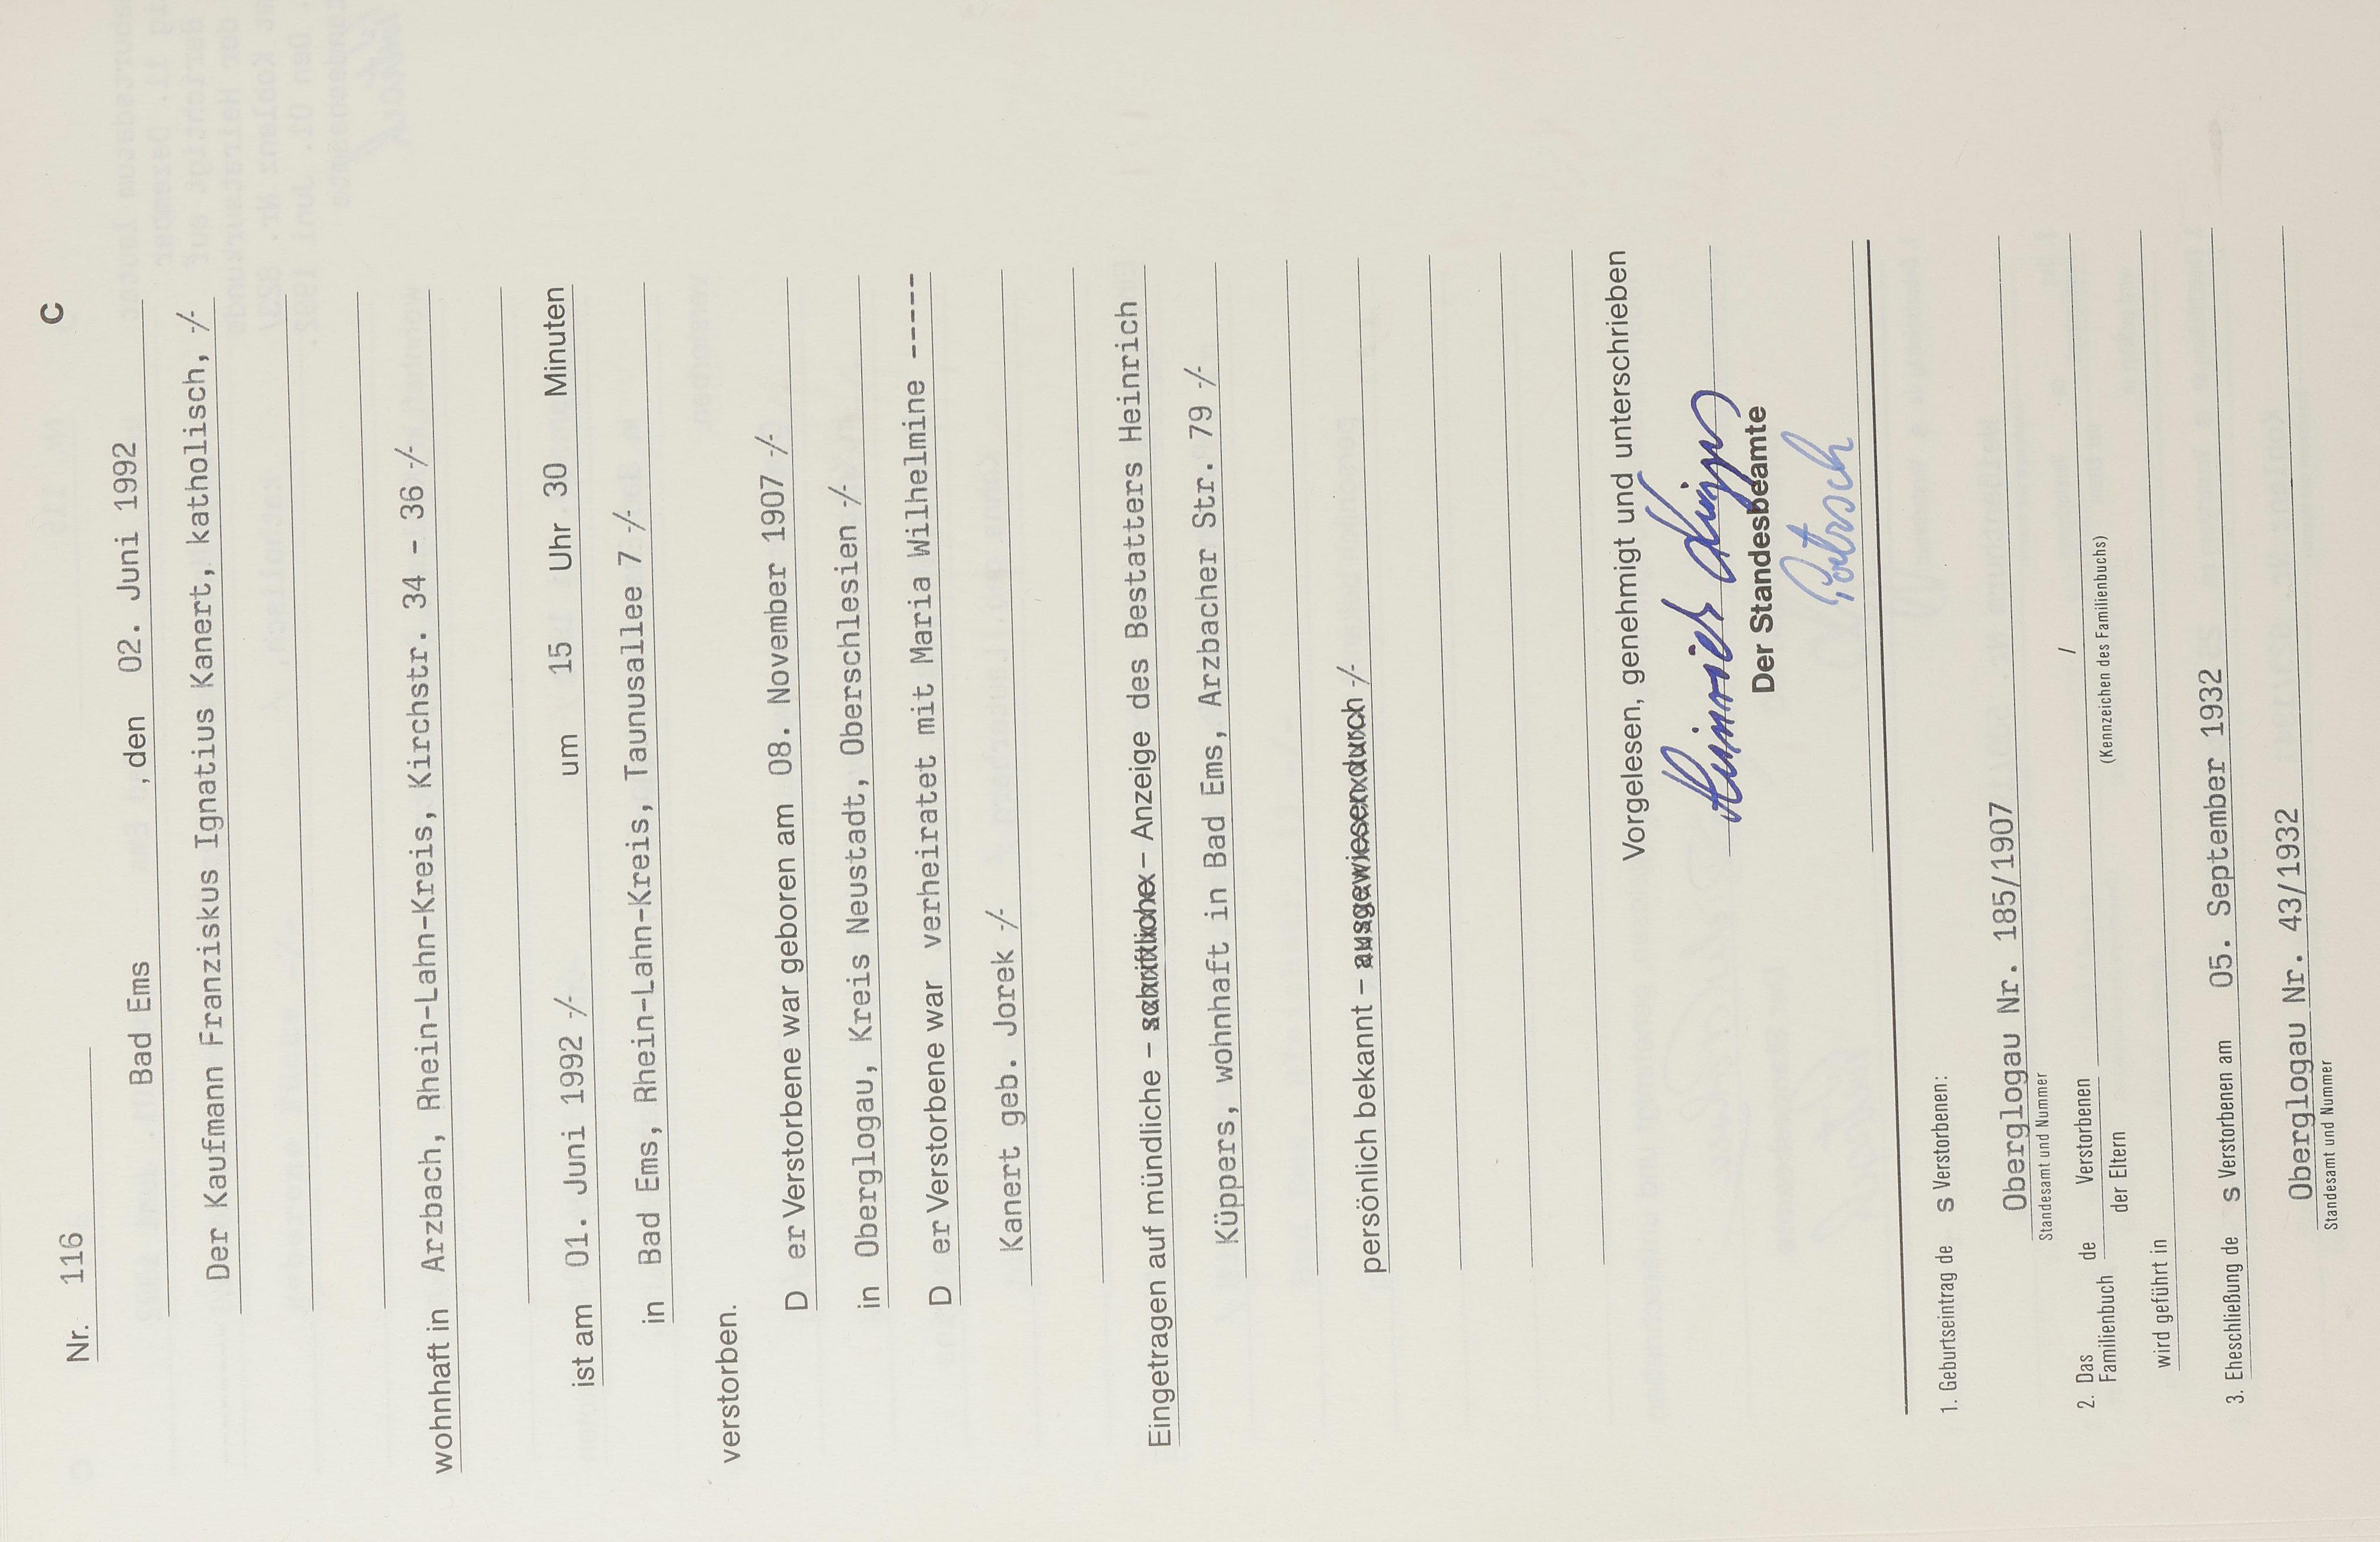 C
Nr. 116
Bad Ems , den 02. Juni 1992
Der Kaufmann Franziskus Ignatius Kanert, katholisch, -/-
wohnhaft in Arzbach, Rhein-Lahn-Kreis, Kirchstr. 34 - 36 -/-
ist am 01. Juni 1992 -/- um 15 Uhr 30 Minuten
in Bad Ems, Rhein-Lahn-Kreis, Taunusallee 7 -/-
verstorben.
D er Verstorbene war geboren am 08. November 1907 -/-
in Oberglogau, Kreis Neustadt, Oberschlesien -/-
D er Verstorbene war verheiratet mit Maria Wilhelmine -----
Kanert geb. Jorek -/-
Eingetragen auf mündliche - schriftliche - Anzeige des Bestatters Heinrich
Küppers, wohnhaft in Bad Ems, Arzbacher Str. 79 -/-
persönlich bekannt - ausgewiesen durch -/-
Vorgelesen, genehmigt und unterschrieben
Heinrich Küppers
Der Standesbeamte
1. Geburtseintrag de s Verstorbenen:
Oberglogau Nr. 185/1907
Standesamt und Nummer
2. Das Familienbuch de Verstorbenen /
der Eltern (Kennzeichen des Familienbuchs)
wird geführt in
3. Eheschließung de s Verstorbenen am 05. September 1932
Oberglogau Nr. 43/1932
Standesamt und Nummer